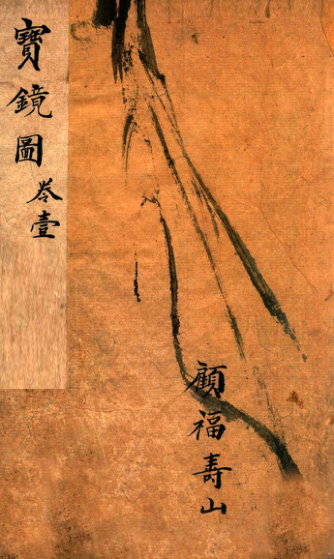 寶鏡圖
卷壹
顧福壽山